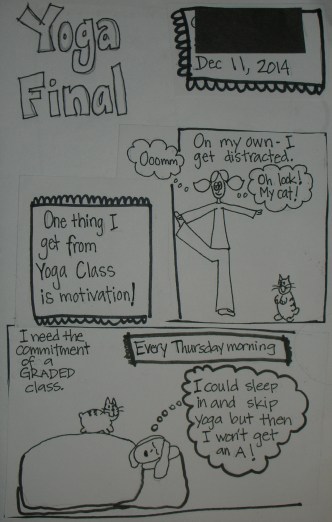 Yoga
Final
Dec 11, 2014
On my own - I
get distracted.
Ooomm
Oh look!
My cat!
One thing I
get from
Yoga Class
is motivation!
I need the
commitment
of a
GRADED
class.
Every Thursday morning
I could sleep
in and skip
yoga but then
I won't get
an A!